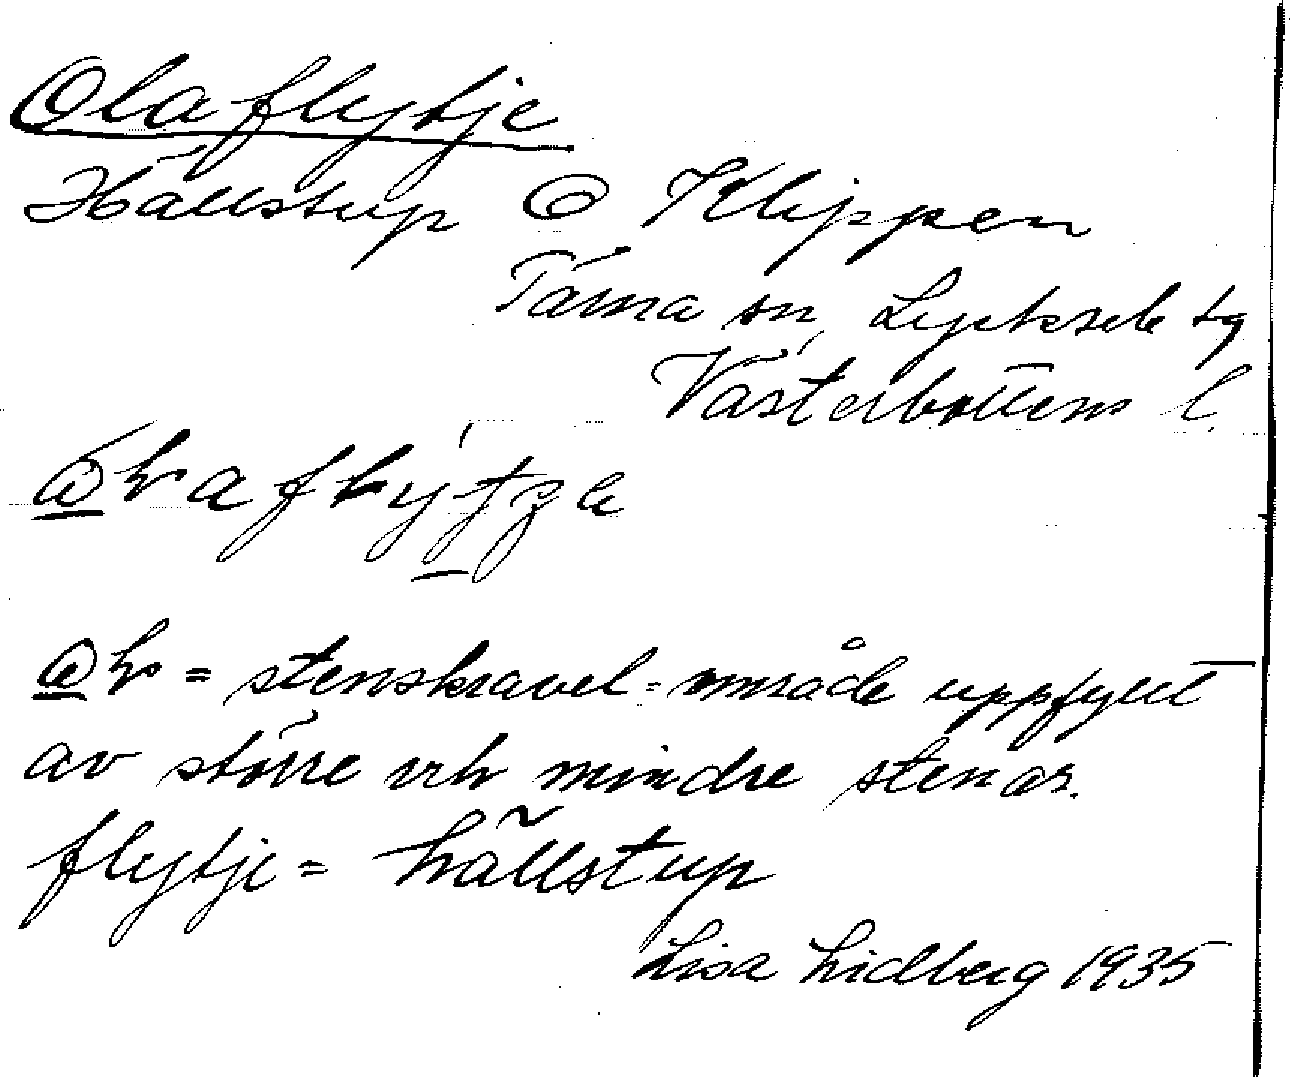 Olaflytje
Hällstup O Klippen
Tärna sn, Lycksele tg
Västerbottens l.
stenskravel = område uppfyllt
av större och mindre stenar.
flytje = hällstup
Lisa Lidberg 1935